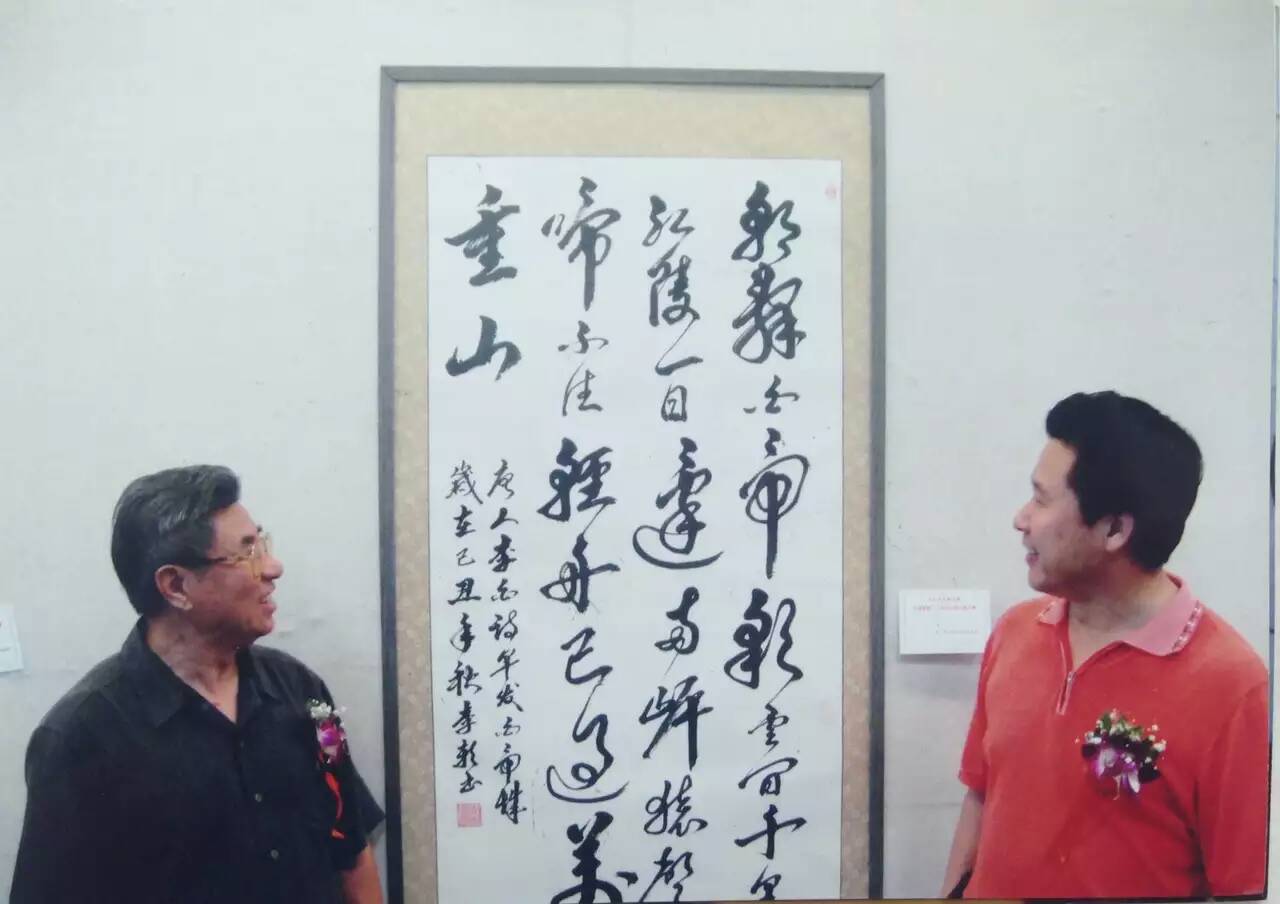 朝辭白帝彩雲間千里
江陵一日還兩岸猿聲
啼不住輕舟已過萬
重山
唐人李白詩早发白帝城
歲在己丑年秋李书